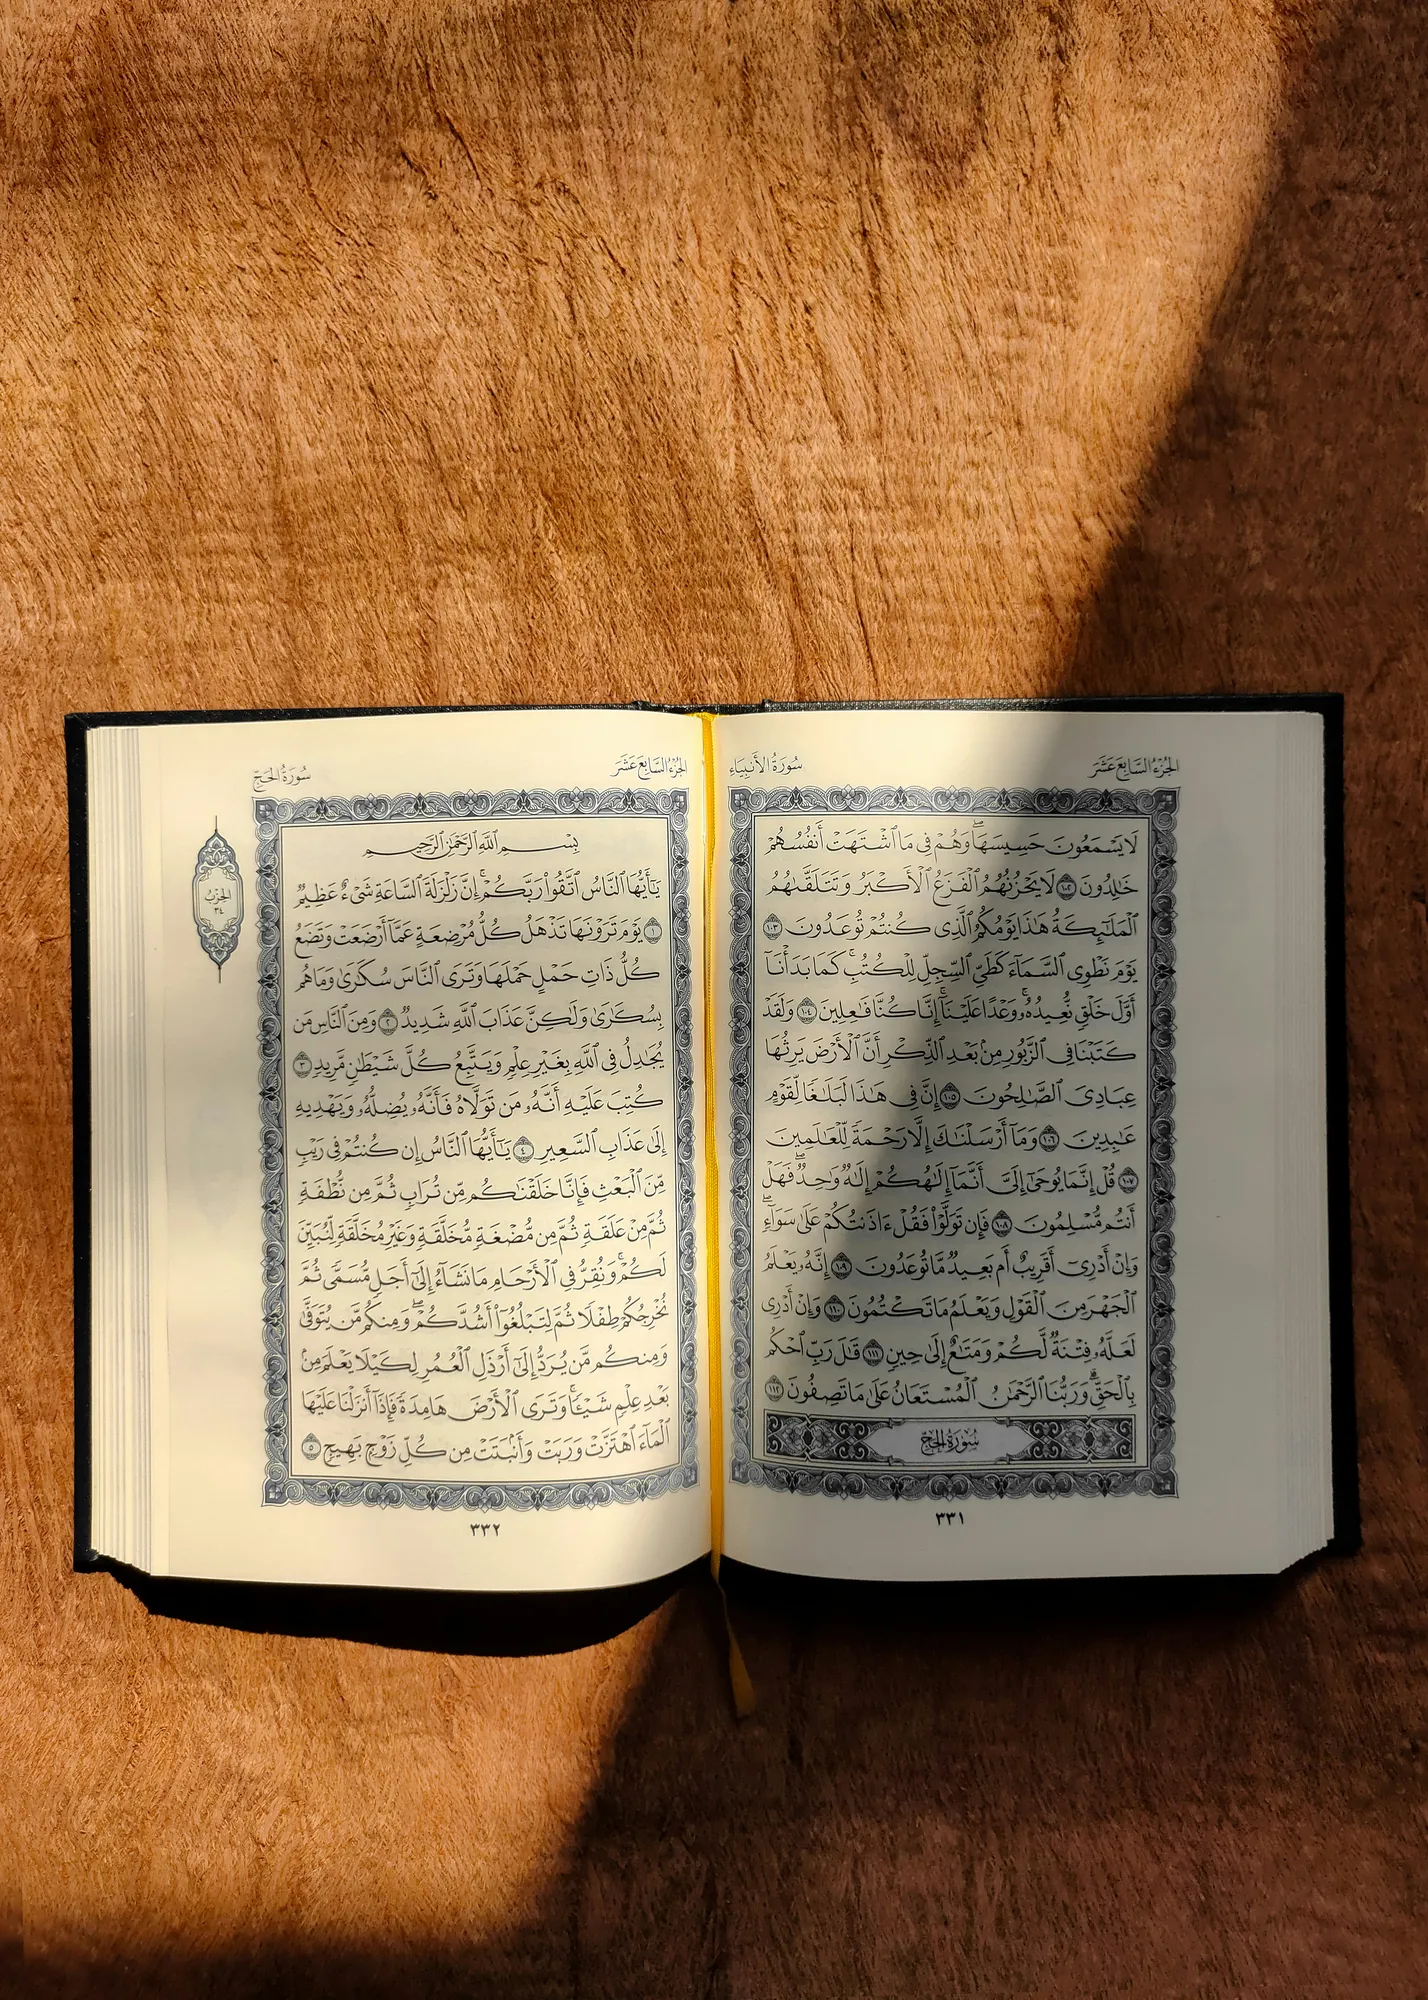 الجُزْءُ السَّابِعَ عَشَرَ
سُورَةُ الأَنبِيَاءِ
لَا يَسْمَعُونَ حَسِيسَهَاۖ وَهُمْ فِي مَا ٱشْتَهَتْ أَنفُسُهُمْ
خَٰلِدُونَ ١٠٢ لَا يَحْزُنُهُمُ ٱلْفَزَعُ ٱلْأَكْبَرُ وَتَتَلَقَّىٰهُمُ
ٱلْمَلَٰٓئِكَةُ هَٰذَا يَوْمُكُمُ ٱلَّذِى كُنتُمْ تُوعَدُونَ ١٠٣
يَوْمَ نَطْوِى ٱلسَّمَآءَ كَطَىِّ ٱلسِّجِلِّ لِلْكُتُبِۚ كَمَا بَدَأْنَآ
أَوَّلَ خَلْقٍ نُّعِيدُهُۥۚ وَعْدًا عَلَيْنَآۚ إِنَّا كُنَّا فَٰعِلِينَ ١٠٤ وَلَقَدْ
كَتَبْنَا فِى ٱلزَّبُورِ مِنۢ بَعْدِ ٱلذِّكْرِ أَنَّ ٱلْأَرْضَ يَرِثُهَا
عِبَادِىَ ٱلصَّٰلِحُونَ ١٠٥ إِنَّ فِى هَٰذَا لَبَلَٰغًا لِّقَوْمٍ
عَٰبِدِينَ ١٠٦ وَمَآ أَرْسَلْنَٰكَ إِلَّا رَحْمَةً لِّلْعَٰلَمِينَ
١٠٧ قُلْ إِنَّمَا يُوحَىٰٓ إِلَىَّ أَنَّمَآ إِلَٰهُكُمْ إِلَٰهٌ وَٰحِدٌۖ فَهَلْ
أَنتُم مُّسْلِمُونَ ١٠٨ فَإِن تَوَلَّوْا۟ فَقُلْ ءَاذَنتُكُمْ عَلَىٰ سَوَآءٍۖ
وَإِنْ أَدْرِىٓ أَقَرِيبٌ أَم بَعِيدٌ مَّا تُوعَدُونَ ١٠٩ إِنَّهُۥ يَعْلَمُ
ٱلْجَهْرَ مِنَ ٱلْقَوْلِ وَيَعْلَمُ مَا تَكْتُمُونَ ١١٠ وَإِنْ أَدْرِى
لَعَلَّهُۥ فِتْنَةٌ لَّكُمْ وَمَتَٰعٌ إِلَىٰ حِينٍ ١١١ قَٰلَ رَبِّ ٱحْكُم
بِٱلْحَقِّۗ وَرَبُّنَا ٱلرَّحْمَٰنُ ٱلْمُسْتَعَانُ عَلَىٰ مَا تَصِفُونَ ١١٢
سُورَةُ الحَجِّ
٣٣١
الجُزْءُ السَّابِعَ عَشَرَ
سُورَةُ الحَجِّ
بِسْمِ ٱللَّهِ ٱلرَّحْمَٰنِ ٱلرَّحِيمِ
يَٰٓأَيُّهَا ٱلنَّاسُ ٱتَّقُوا۟ رَبَّكُمْۚ إِنَّ زَلْزَلَةَ ٱلسَّاعَةِ شَىْءٌ عَظِيمٌ
١ يَوْمَ تَرَوْنَهَا تَذْهَلُ كُلُّ مُرْضِعَةٍ عَمَّآ أَرْضَعَتْ وَتَضَعُ
كُلُّ ذَاتِ حَمْلٍ حَمْلَهَا وَتَرَى ٱلنَّاسَ سُكَٰرَىٰ وَمَا هُم
بِسُكَٰرَىٰ وَلَٰكِنَّ عَذَابَ ٱللَّهِ شَدِيدٌ ٢ وَمِنَ ٱلنَّاسِ مَن
يُجَٰدِلُ فِى ٱللَّهِ بِغَيْرِ عِلْمٍ وَيَتَّبِعُ كُلَّ شَيْطَٰنٍ مَّرِيدٍ ٣
كُتِبَ عَلَيْهِ أَنَّهُۥ مَن تَوَلَّاهُ فَأَنَّهُۥ يُضِلُّهُۥ وَيَهْدِيهِ
إِلَىٰ عَذَابِ ٱلسَّعِيرِ ٤ يَٰٓأَيُّهَا ٱلنَّاسُ إِن كُنتُمْ فِى رَيْبٍ
مِّنَ ٱلْبَعْثِ فَإِنَّا خَلَقْنَٰكُم مِّن تُرَابٍ ثُمَّ مِن نُّطْفَةٍ
ثُمَّ مِنْ عَلَقَةٍ ثُمَّ مِن مُّضْغَةٍ مُّخَلَّقَةٍ وَغَيْرِ مُخَلَّقَةٍ لِّنُبَيِّنَ
لَكُمْۚ وَنُقِرُّ فِى ٱلْأَرْحَامِ مَا نَشَآءُ إِلَىٰٓ أَجَلٍ مُّسَمًّى ثُمَّ
نُخْرِجُكُمْ طِفْلًا ثُمَّ لِتَبْلُغُوٓا۟ أَشُدَّكُمْۖ وَمِنكُم مَّن يُتَوَفَّىٰ
وَمِنكُم مَّن يُرَدُّ إِلَىٰٓ أَرْذَلِ ٱلْعُمُرِ لِكَيْلَا يَعْلَمَ مِنۢ
بَعْدِ عِلْمٍ شَيْـًٔاۚ وَتَرَى ٱلْأَرْضَ هَامِدَةً فَإِذَآ أَنزَلْنَا عَلَيْهَا
ٱلْمَآءَ ٱهْتَزَّتْ وَرَبَتْ وَأَنۢبَتَتْ مِن كُلِّ زَوْجٍۭ بَهِيجٍ ٥
الحِزْبُ
٣٤
٣٣٢